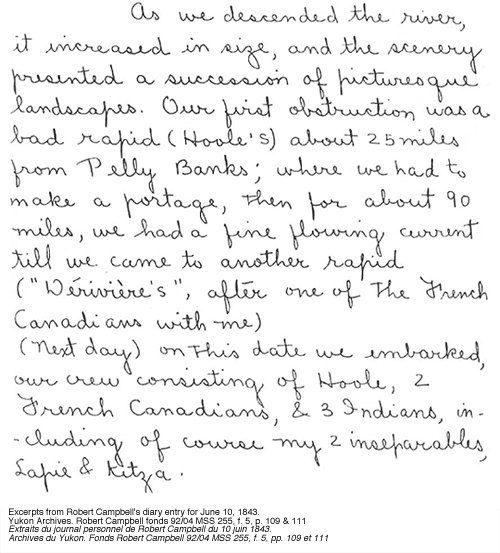 As we descended the river,
it increased in size, and the scenery
presented a succession of picturesque
landscapes. Our first obstruction was a
bad rapid (Hoole's) about 25 miles
from Pelly Banks; where we had to
make a portage, then for about 90
miles, we had a fine flowing current
till we came to another rapid
("Dérivière's", after one of The French
Canadians with me)
(Next day) on This date we embarked,
our crew consisting of Hoole, 2
French Canadians, & 3 Indians, in-
-cluding of course my 2 inseparables,
Lapie & Kitza.
Excerpts from Robert Campbell's diary entry for June 10, 1843.
Yukon Archives. Robert Campbell fonds 92/04 MSS 255, f. 5, p. 109 & 111
Extraits du journal personnel de Robert Campbell du 10 juin 1843.
Archives du Yukon. Fonds Robert Campbell 92/04 MSS 255, f. 5, pp. 109 et 111